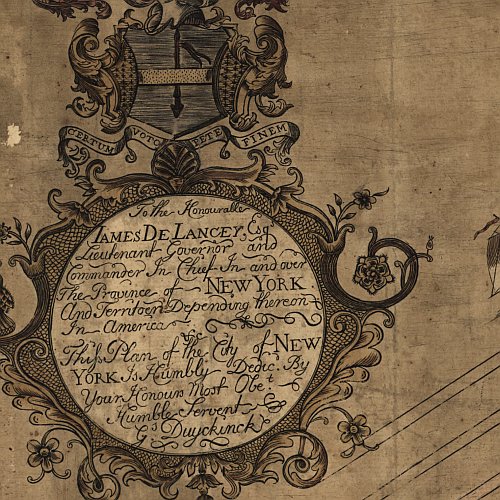 CERTUM VOTO PETE FINEM
To the Honourable
JAMES DE LANCEY, Esq.
Lieutenant Governor and
Commander In Chief In and over
The Province of NEW YORK
And Territories Depending thereon
In America
This Plan of the City of NEW
YORK Is Humbly Dedic. By
Your Honours Most Obe.t
Humble Servent
G: Duyckinck